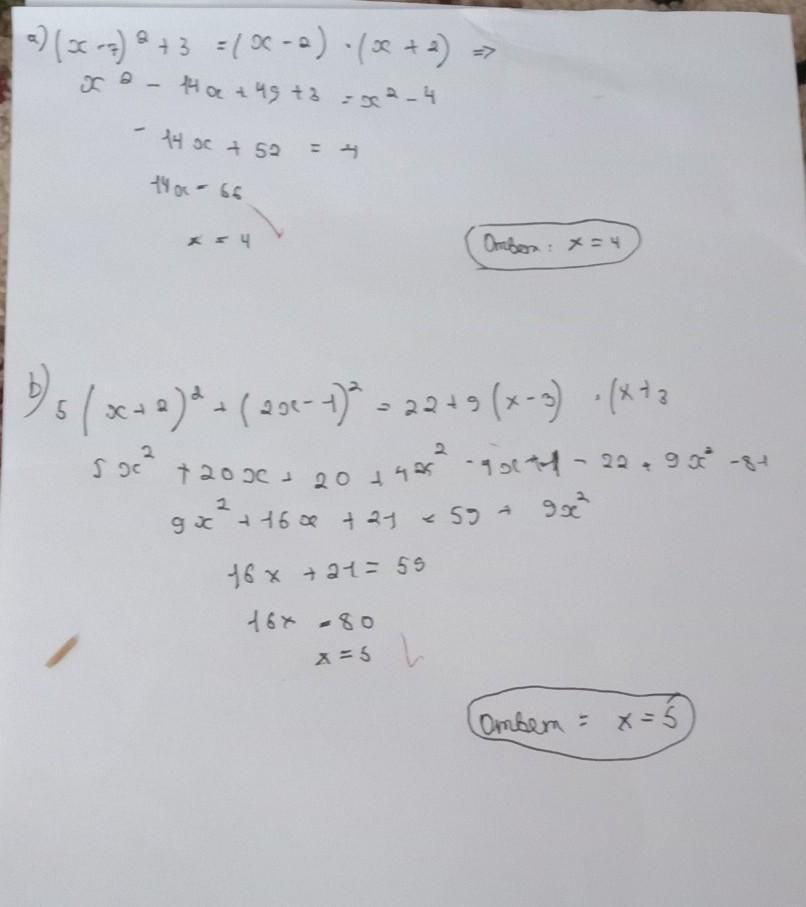 a) (x-7)² + 3 = (x-2) · (x+2) =>
x² - 14x + 49 + 3 = x² - 4
-14x + 52 = 4
14x - 56
x = 4
Ответ: x = 4
b) 5(x+2)² + (2x-1)² = 22 + 9(x-3) · (x+3
5x² + 20x + 20 + 4x² - 4x + 1 - 22 + 9x² - 81
9x² + 16x + 21 = 59 + 9x²
16x + 21 = 59
16x = 80
x = 5
Ответ = x = 5